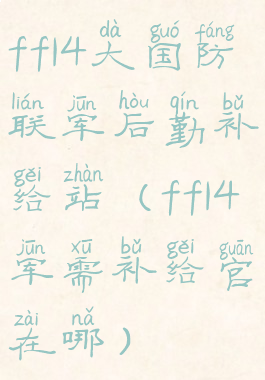 dà guó fáng
ff14大国防
lián jūn hòu qín bǔ
联军后勤补
gěi zhàn
给站（ff14
jūn xū bǔ gěi guān
军需补给官
zài nǎ
在哪）